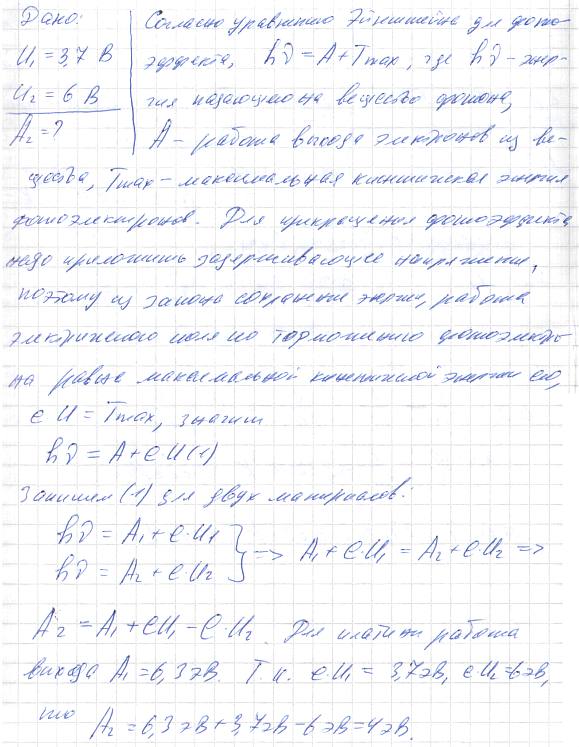 Дано:
U₁ = 3,7 В
U₂ = 6 В
A₂ = ?
Согласно уравнению Эйнштейна для фото-
эффекта, hν = A + Tmax, где hν - энер-
гия падающего на вещество фотона,
A - работа выхода электронов из ве-
щества, Tmax - максимальная кинетическая энергия
фотоэлектронов. Для прекращения фотоэффекта
надо приложить задерживающее напряжение,
поэтому из закона сохранения энергии, работа
электрического поля по торможению фотоэлектро-
на равна максимальной кинетической энергии его,
eU = Tmax, значит
hν = A + eU (1)
Запишем (1) для двух материалов:
hν = A₁ + e·U₁
hν = A₂ + e·U₂ } => A₁ + e·U₁ = A₂ + e·U₂ =>
A₂ = A₁ + eU₁ - e·U₂. Для платины работа
выхода A₁ = 6,3 эВ. Т.к. e·U₁ = 3,7 эВ, eU₂ = 6 эВ,
то A₂ = 6,3 эВ + 3,7 эВ - 6 эВ = 4 эВ.